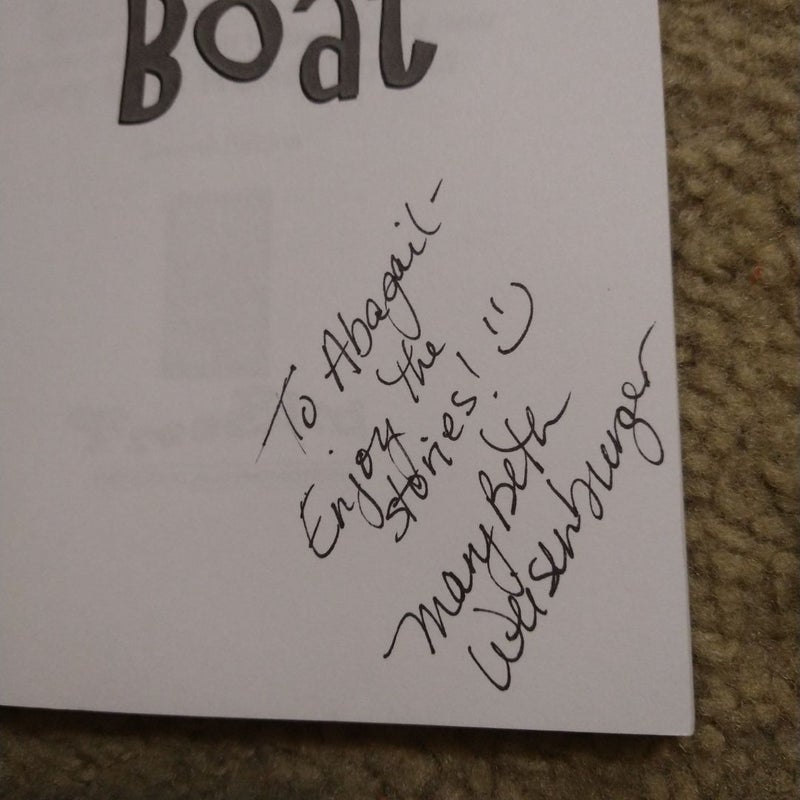 Boat
To Abagail-
Enjoy the
stories! :)
Mary Beth
Weisenburger